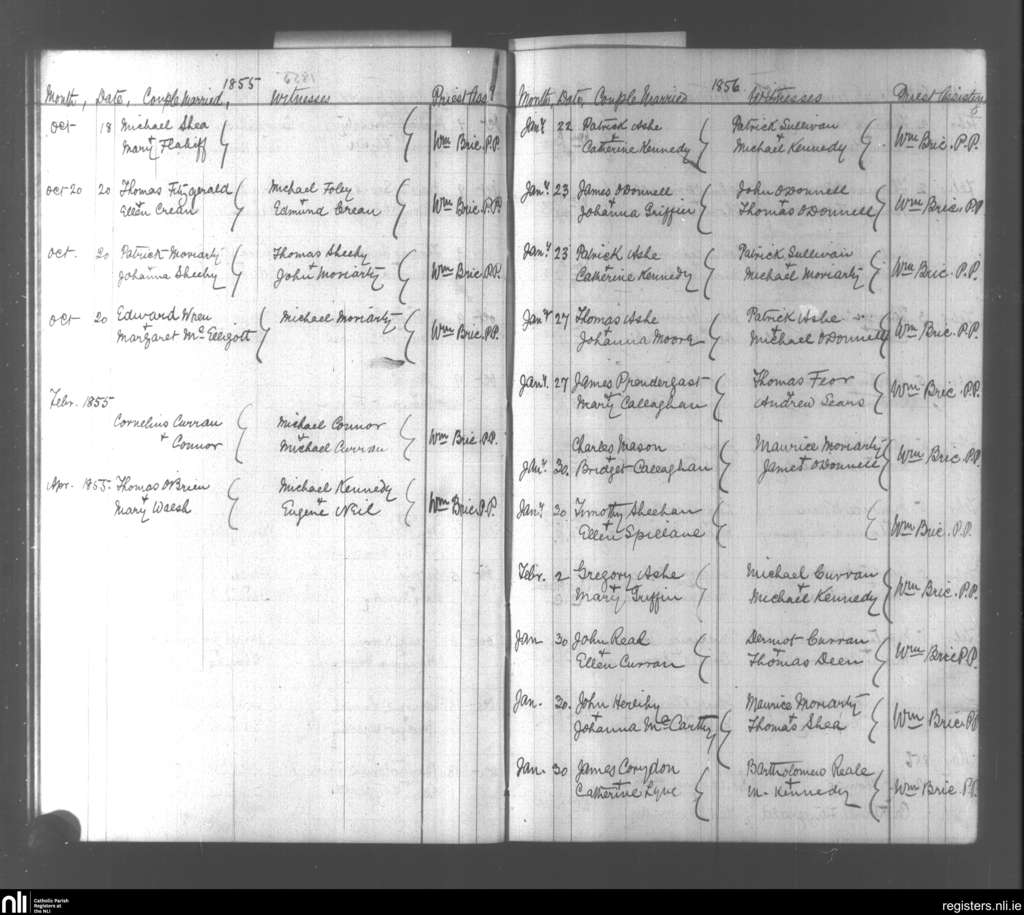 1855
Month, Date, Couple Married, Witnesses Priest Ass
Oct 18 Michael Shea
+
Mary Flahiff Wm Bric. P.P.
Oct 20 20 Thomas Fitzgerald Michael Foley
+ +
Ellen Crean Edmund Crean Wm Bric. P.P.
Oct. 20 Patrick Moriarty Thomas Sheehy
+ +
Johanna Sheehy John Moriarty Wm Bric. P.P.
Oct 20 Edward Wren Michael Moriarty
+
Margaret McElligott Wm Bric. P.P.
Febr. 1855
Cornelius Curran Michael Connor
+ Connor + Michael Curran Wm Bric P.P.
Apr. 1855. Thomas O'Brien Michael Kennedy
+ +
Mary Walsh Eugene Neil Wm Bric P.P.
1856
Month, Date, Couple Married Witnesses Priest Assisting
6
Jany. 22 Patrick Ashe Patrick Sullivan
+ +
Catherine Kennedy Michael Kennedy Wm Bric. P.P.
Jany. 23 James O Donnell John O Donnell
+ +
Johanna Griffin Thomas O Donnell Wm Bric. P.P.
Jany. 23 Patrick Ashe Patrick Sullivan
+ +
Catherine Kennedy Michael Moriarty Wm Bric. P.P.
Jany 27 Thomas Ashe Patrick Ashe
+ +
Johanna Moore Michael O Donnell Wm Bric. P.P.
Jany. 27 James Prendergast Thomas Feor
+ +
Mary Callaghan Andrew Sears Wm Bric. P.P.
Charles Mason Maurice Moriarty
+ +
Jany. 30. Bridget Callaghan James O Donnell Wm Bric. P.P.
Jany. 30 Timothy Sheehan
+
Ellen Spillane Wm Bric. P.P.
Febr. 2 Gregory Ashe Michael Curran
+ +
Mary Griffin Michael Kennedy Wm Bric. P.P.
Jan 30 John Real Dermot Curran
+ +
Ellen Curran Thomas Deen Wm Bric P.P.
Jan. 30. John Herlihy Maurice Moriarty
+ +
Johanna McCartty Thomas Shea Wm Bric. P.P
Jan. 30 James Corydon Bartholomew Reale
+ +
Catherine Lyne M. Kennedy Wm Bric. P.P.
nli Catholic Parish
Registers at
the NLI
registers.nli.ie